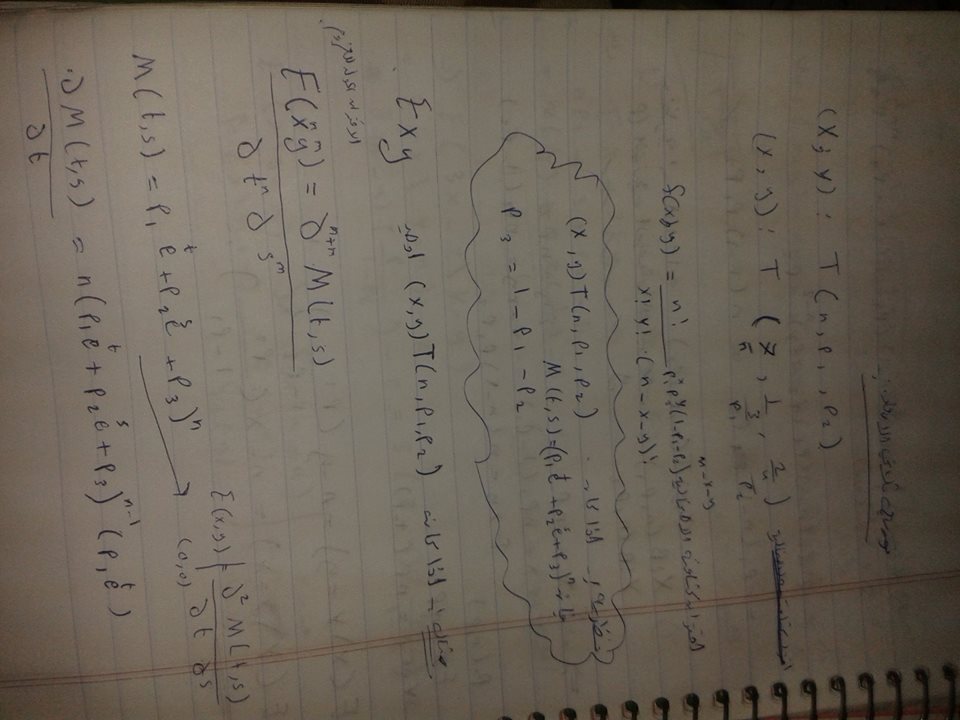 توزيع ثلاثي الابعاد :-
(X, y) : T (n, p₁, p₂)
(x, y) : T (7/n, 1/3/p₁, 2/4/p₂)
f(x,y) = n! / x! y! (n-x-y)! p₁ˣ p₂ʸ (1-p₁-p₂)ⁿ⁻ˣ⁻ʸ الاحتمالية
نظرية :- اذا كان (X, y) T(n, p₁, p₂)
فان M(t,s) = (p₁eᵗ + p₂eˢ + p₃)ⁿ
p₃ = 1 - p₁ - p₂
مثال :- اذا كان (x,y) T(n, p₁, p₂) اوجد Exy
E(xⁿyᵐ) = ∂ⁿ⁺ᵐ M(t,s) / ∂tⁿ ∂sᵐ
E(x,y) |(0,0) ∂² M(t,s) / ∂t ∂s
M(t,s) = p₁eᵗ + p₂eˢ + p₃)ⁿ
∂M(t,s) / ∂t = n(p₁eᵗ + p₂eˢ + p₃)ⁿ⁻¹ (p₁eᵗ)